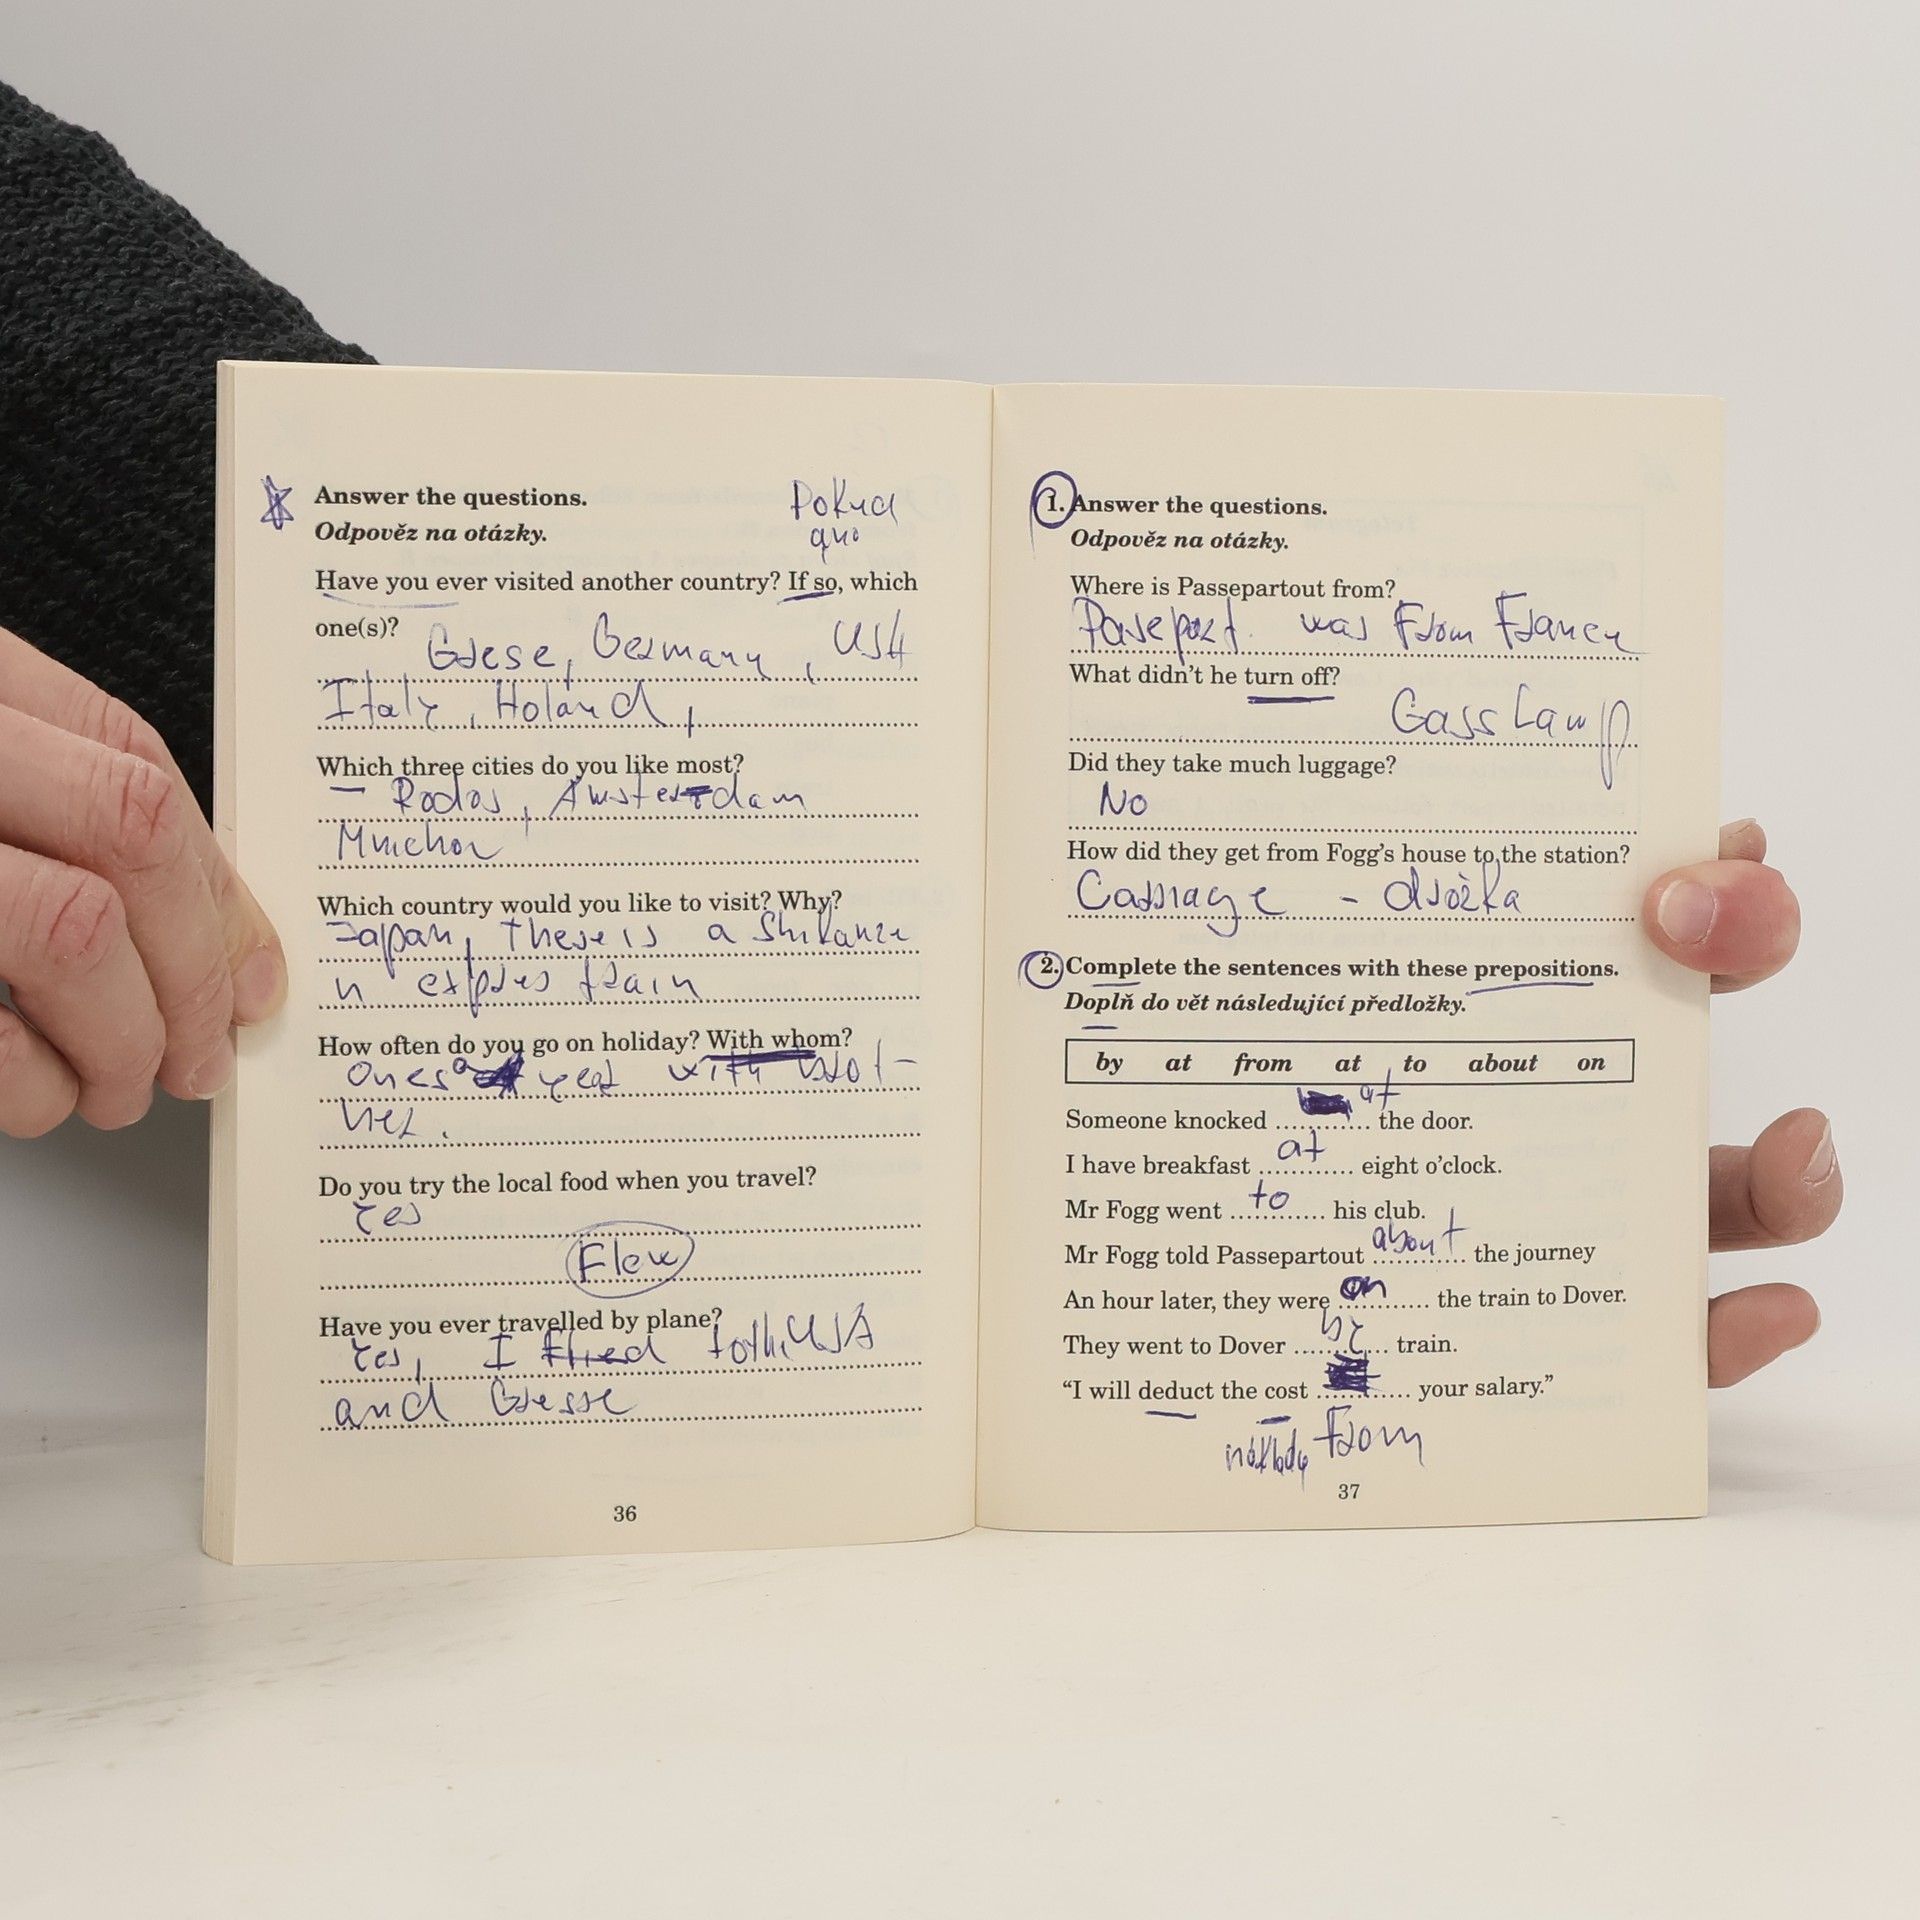 Answer the questions.
Pokud
Odpověz na otázky.
ano
Have you ever visited another country? If so, which
one(s)?
Grese, Germany, USA
Italy, Holand,
Which three cities do you like most?
– Rodos, Amsterdam
Munchor
Which country would you like to visit? Why?
Japan, there is a Shikanze
n expres train
How often do you go on holiday? With whom?
Ones a year with brot-
her.
Do you try the local food when you travel?
Yes
Flew
Have you ever travelled by plane?
Yes, I Flied to USA
and Gresse
36
1. Answer the questions.
Odpověz na otázky.
Where is Passepartout from?
Pasepart. was From France
What didn't he turn off?
Gass Lamp
Did they take much luggage?
No
How did they get from Fogg's house to the station?
Carriage – drožka
2. Complete the sentences with these prepositions.
Doplň do vět následující předložky.
by at from at to about on
Someone knocked ............ at the door.
I have breakfast ....at.... eight o'clock.
Mr Fogg went ....to.... his club.
Mr Fogg told Passepartout ....about.... the journey
An hour later, they were ....on.... the train to Dover.
They went to Dover ....by.... train.
“I will deduct the cost ............ your salary.”
náklady From
37